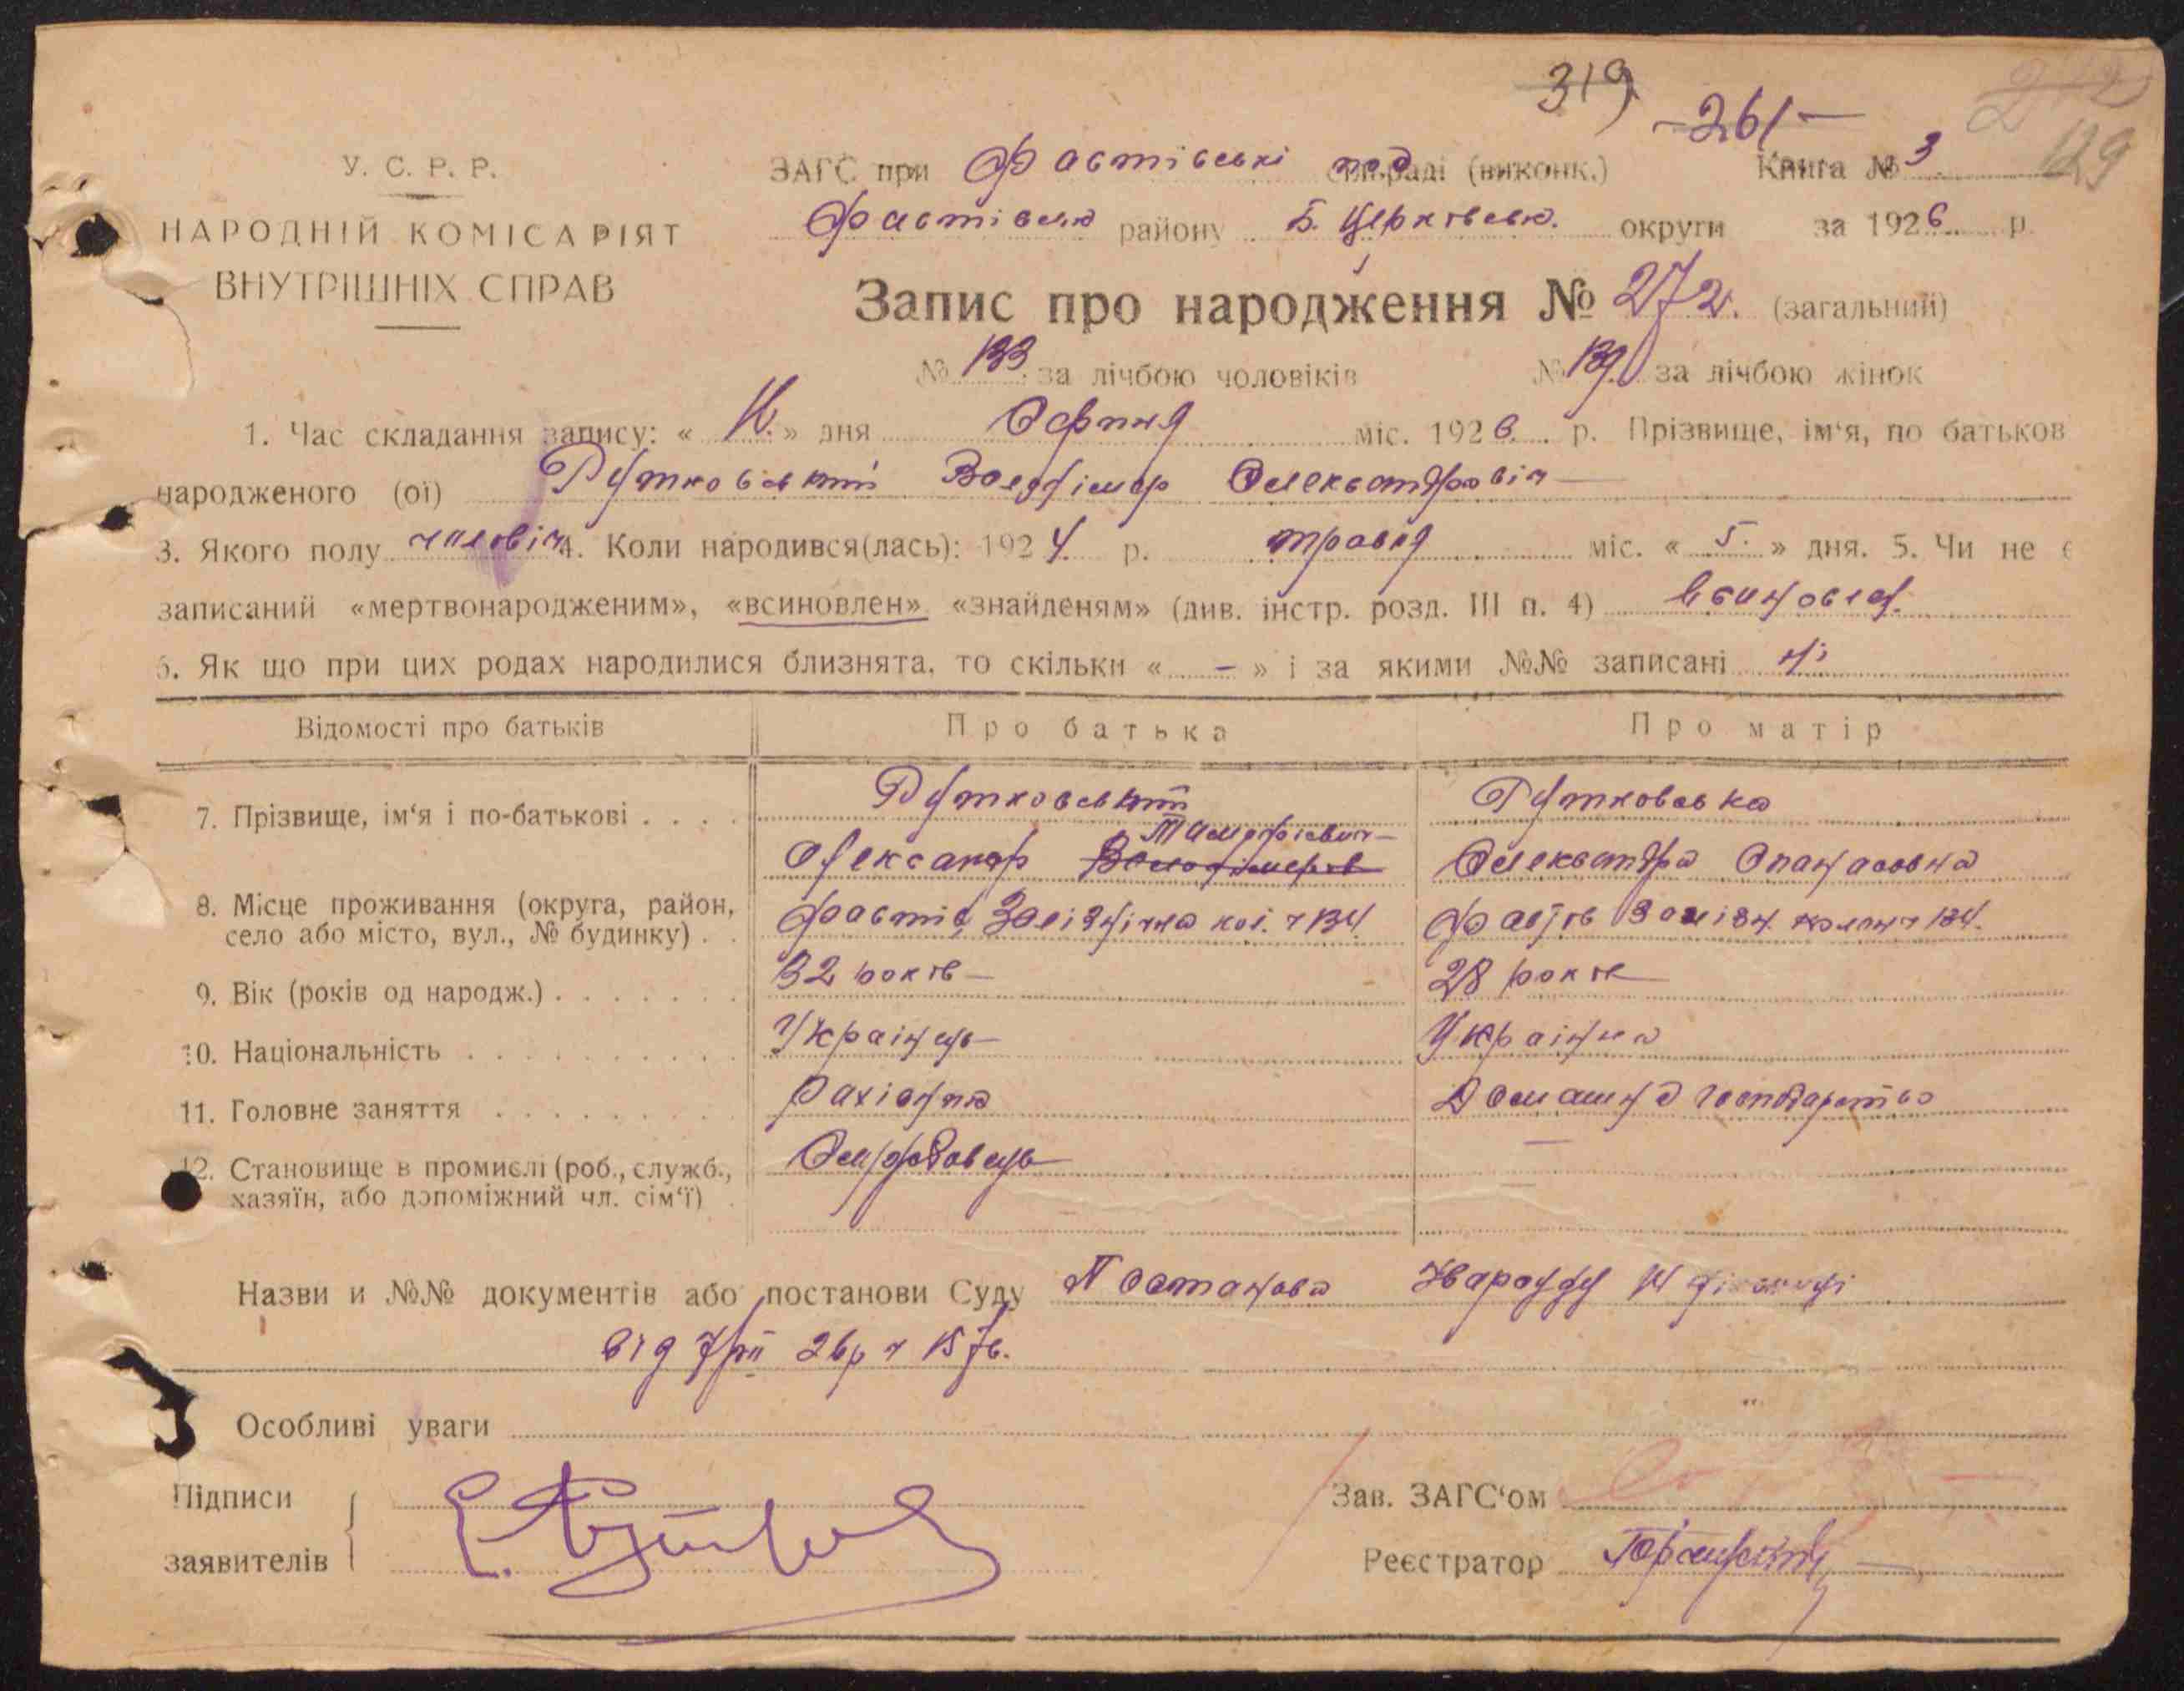 319
-261-
129
У. С. Р. Р.
НАРОДНІЙ КОМІСАРІЯТ
ВНУТРІШНІХ СПРАВ
ЗАГС при Фастівські рад (виконк.) Книга № 3
Фастівськ району Б. Церківськ. округи за 1926 р.
Запис про народження № 272. (загальний)
№ 133 за лічбою чоловіків № 139 за лічбою жінок
1. Час складання запису: « » дня Серпня міс. 1926 р. Прізвище, ім‘я, по батьков
народженого (ої) Рутковський Володімир Олександровіч
3. Якого полу чоловіч 4. Коли народився(лась): 1924 р. травня міс. « 5. » дня. 5. Чи не є
записаний «мертвонародженим», «всиновлен» «знайденям» (див. інстр. розд. III п. 4) всиновлен.
6. Як що при цих родах народилися близнята, то скільки « - » і за якими №№ записані ні
Відомості про батьків Про батька Про матір
7. Прізвище, ім‘я і по-батькові . . . . Рутковський Рутковська
Олександр Олександра Опанасовна
8. Місце проживання (округа, район, село або місто, вул., № будинку) . . Фастів Залізнична кол. ч 134 Фастів Залізн. колон ч 134.
9. Вік (років од народж.) . . . . . . . 32 років 28 років
10. Національність . . . . . . . . . . Українець Українка
11. Головне заняття . . . . . . . . . Домашнє господарство
12. Становище в промислі (роб., служб., хазяїн, або допоміжний чл. сім‘ї) . —
Назви и №№ документів або постанови Суду Постанова Нарсуду
від
Особливі уваги
Підписи
заявителів
Зав. ЗАГС‘ом
Реєстратор